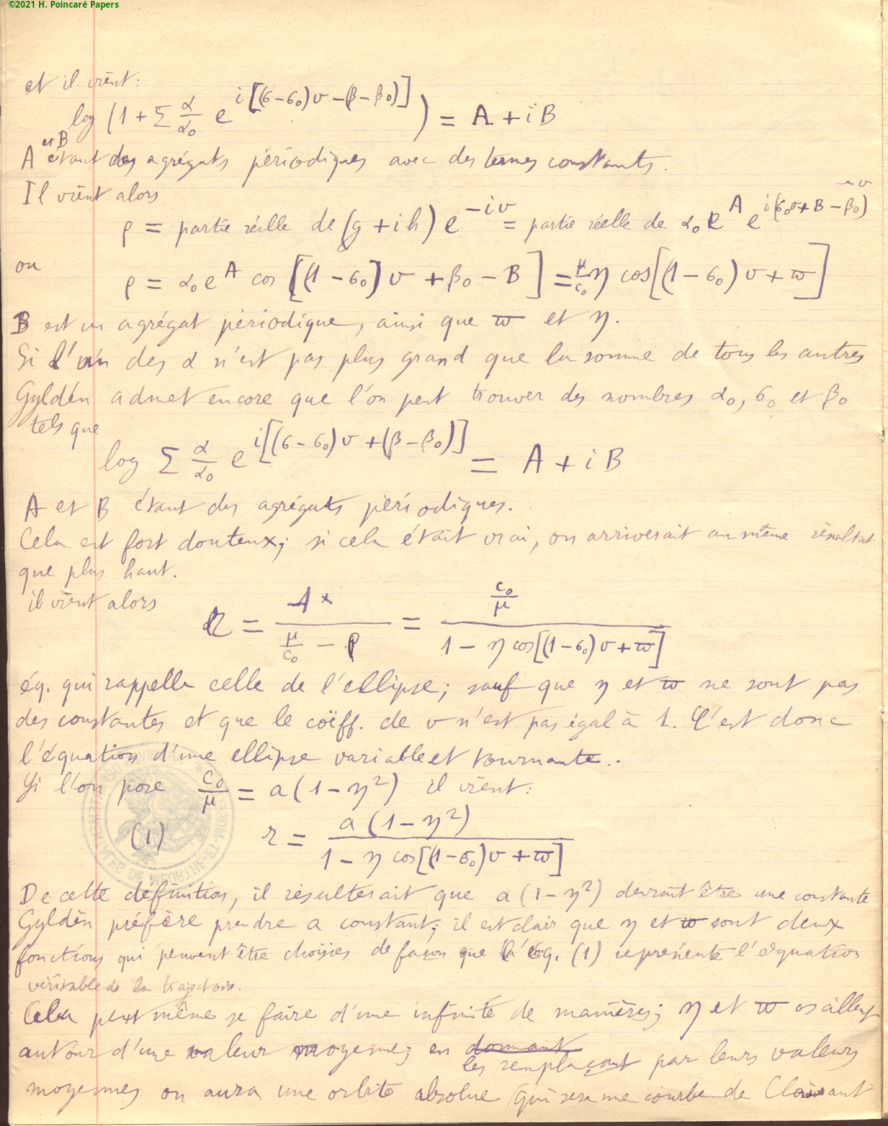 ©2021 H. Poincaré Papers
et il vient:
log (1 + Σ α/α₀ e^{i[(σ-σ₀)v-(β-β₀)]}) = A + iB
A et B étant des agrégats périodiques avec des termes constants.
Il vient alors
ρ = partie réelle de (g + ih) e^{-iv} = partie réelle de α₀ e^A e^{i(σ₀v + B - β₀ - v)}
ou ρ = α₀ e^A cos [(1-σ₀)v + β₀ - B] = μ/c₀ η cos[(1-σ₀)v + ϖ]
B est un agrégat périodique, ainsi que ϖ et η.
Si l'un des α n'est pas plus grand que la somme de tous les autres
Gyldén admet encore que l'on peut trouver des nombres α₀, σ₀ et β₀
tels que
log Σ α/α₀ e^{i[(σ-σ₀)v + (β-β₀)]} = A + iB
A et B étant des agrégats périodiques.
Cela est fort douteux; si cela était vrai, on arriverait au même résultat
que plus haut.
il vient alors
r = 1/(μ/c₀ - ρ) = (c₀/μ)/(1 - η cos[(1-σ₀)v + ϖ])
éq. qui rappelle celle de l'ellipse; sauf que η et ϖ ne sont pas
des constantes et que le coëff. de v n'est pas égal à 1. C'est donc
l'équation d'une ellipse variable et tournante..
Si l'on pose c₀/μ = a(1-η²) il vient:
(1) r = a(1-η²)/(1 - η cos[(1-σ₀)v + ϖ])
De cette définition, il résulterait que a(1-η²) devrait être une constante
Gyldén préfère prendre a constant; il est clair que η et ϖ sont deux
fonctions qui peuvent être choisies de façon que l'éq. (1) représente l'équation
véritable de la trajectoire.
Cela peut même se faire d'une infinité de manières; η et ϖ oscillent
autour d'une valeur moyenne; en donnant
les remplaçant par leurs valeurs
moyennes on aura une orbite absolue qui sera une courbe de Clairaut